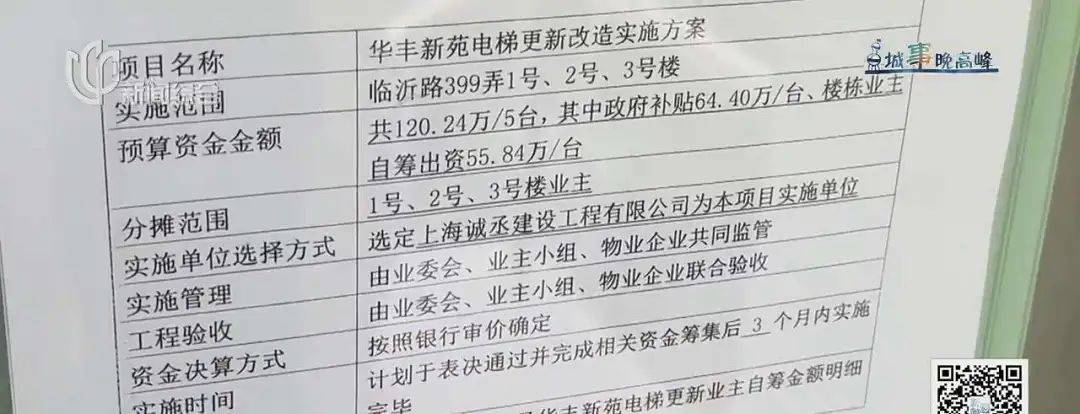 新闻综合
城事晚高峰
项目名称 华丰新苑电梯更新改造实施方案
实施范围 临沂路399弄1号、2号、3号楼
预算资金金额 共120.24万/5台，其中政府补贴64.40万/台、楼栋业主
自筹出资55.84万/台
分摊范围 1号、2号、3号楼业主
实施单位选择方式 选定上海诚丞建设工程有限公司为本项目实施单位
实施管理 由业委会、业主小组、物业企业共同监管
工程验收 由业委会、业主小组、物业企业联合验收
资金决算方式 按照银行审价确定
实施时间 计划于表决通过并完成相关资金筹集后 3 个月内实施
完毕
华丰新苑电梯更新业主自筹金额明细